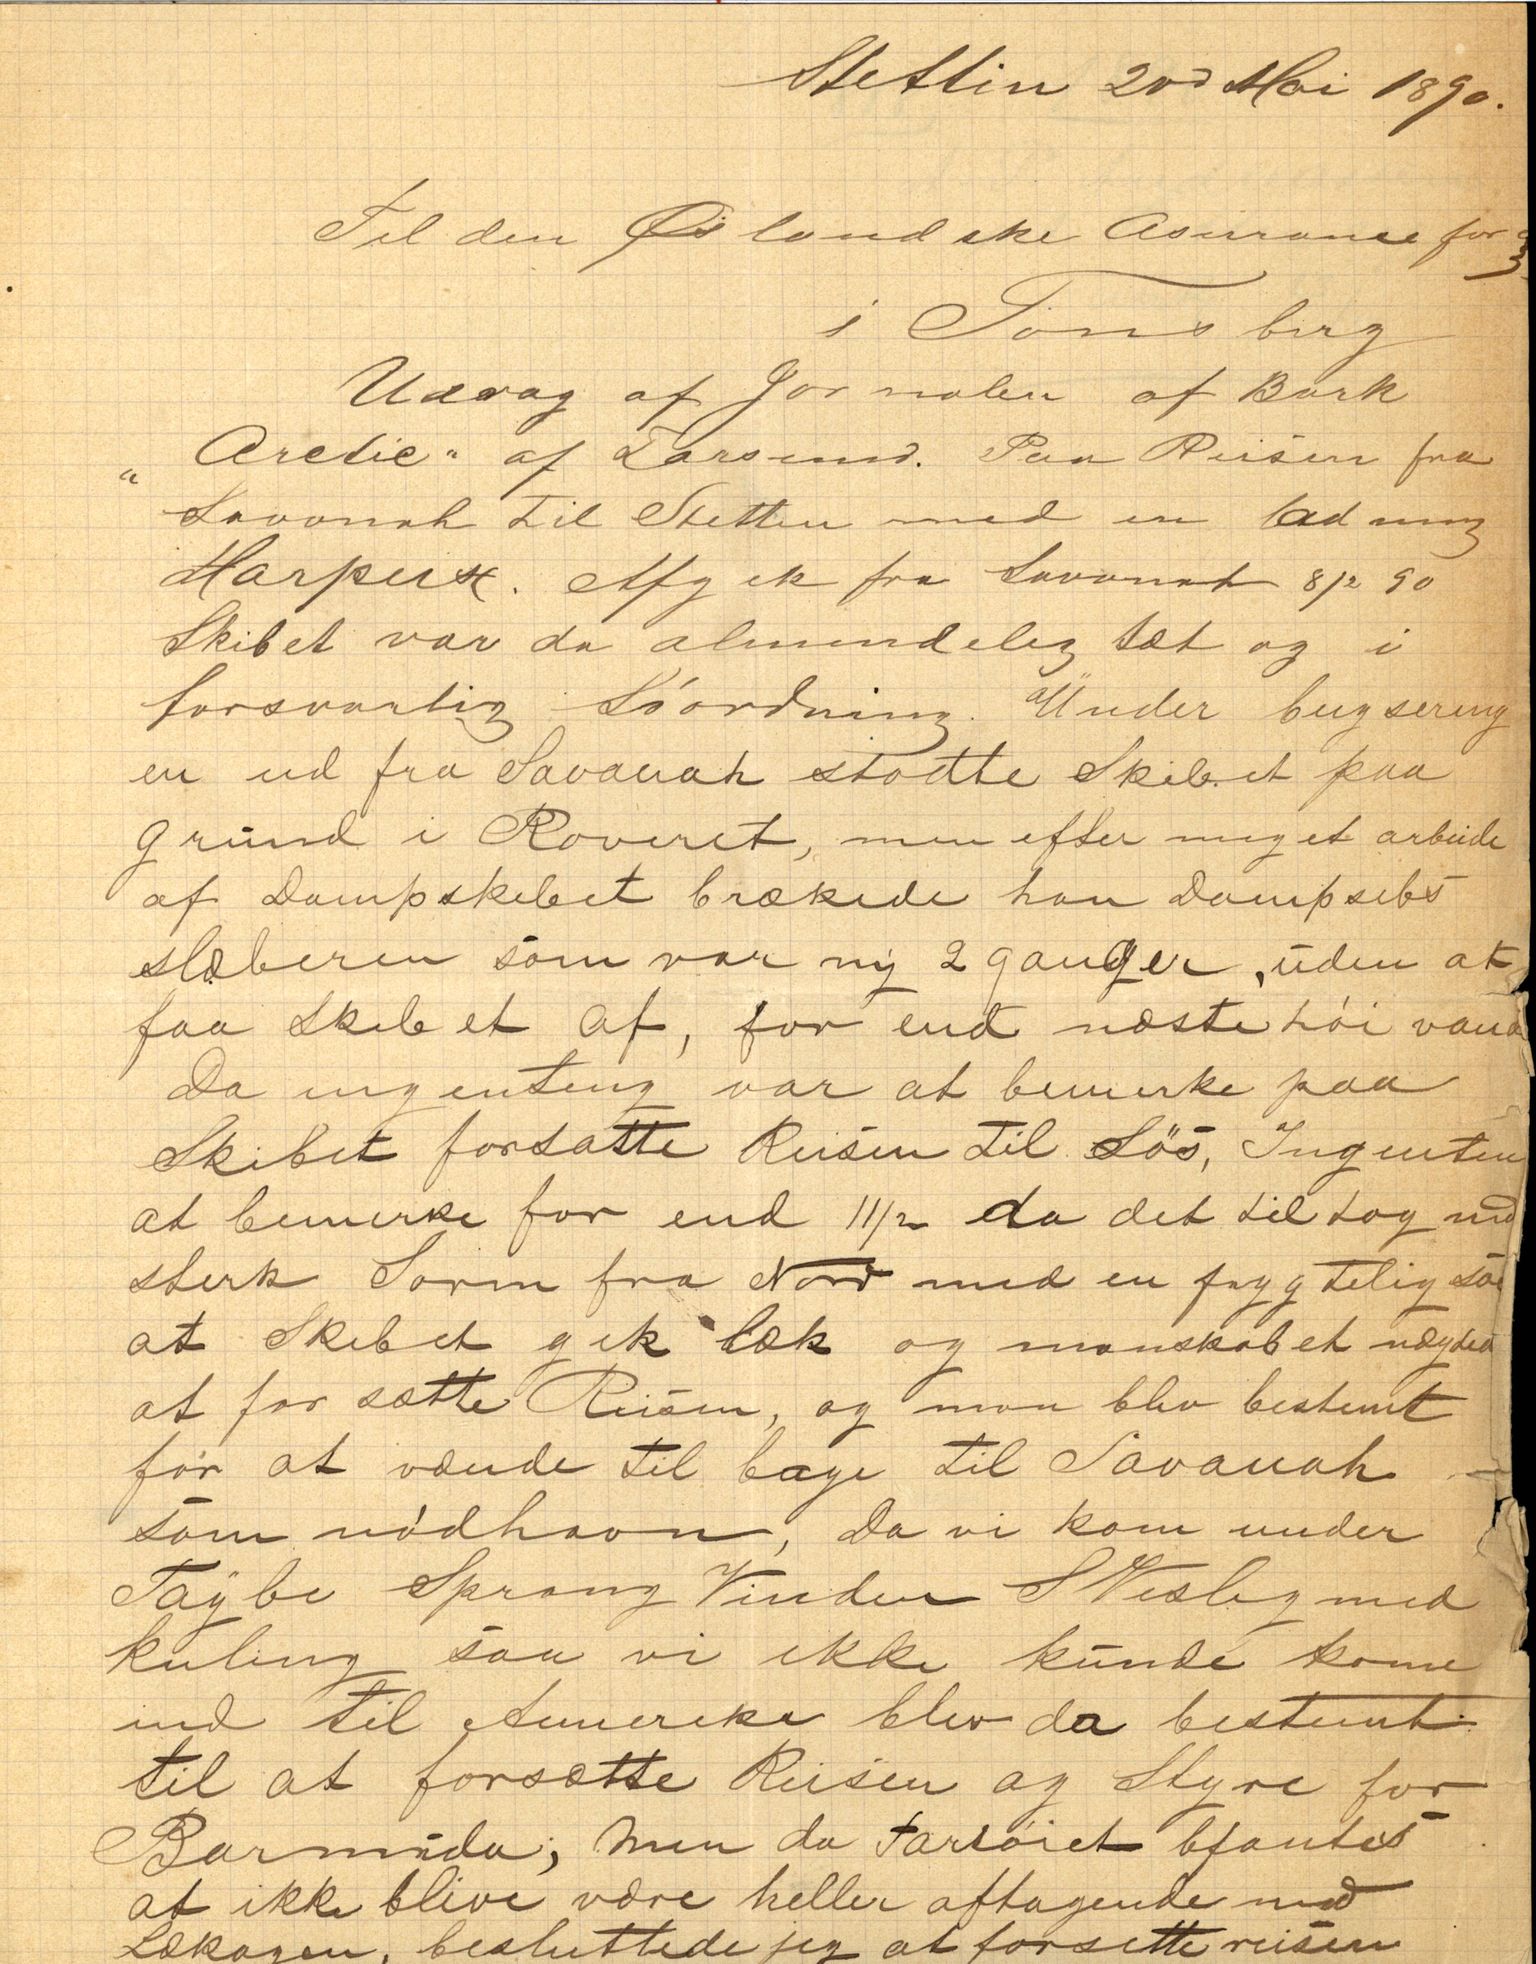 Stettin 20d Mai 1890.
Til den Øslandske Asurance for
i Tönsberg
Udrag af Jornalen af Bark
"Arctic" af Farsund. Paa Reisen fra
Savanah til Stettin med en ladning
Harpeux. Afgik fra Savanah 8/2 90
Skibet var da almindelig tæt og i
forsvarlig Söordning. Under bugsering
en ud fra Savanah stødte Skibet paa
grund i Roveret, men efter meget arbeide
af Dampskibet brækede han Dampsibs
slæberen som var ny 2 ganger, uden at
faa Skibet af, for end næste høi vand
Da ingenting var at bemerke paa
Skibet forsatte Reisen til SöS, Ingenten
at bemerke for end 11/2 da det tiltog med
sterk Sorm fra Nord med en frygtelig sö
at Skibet gik læk og manskabet nægted
at forsætte Reisen, og man blev bestemt
før at vænde tilbage til Savanah
som nødhavn, Da vi kom under
Taÿbe Sprang Vinden SVeslig med
kuling saa vi ikke kunde kome
ind til Amereka blev da bestemt
til at forsætte Reisen og Styre for
Barmuda; Men da Fartøiet bfantes
at ikke blive være heller aftagende med
Lækagen, besluttede jeg at forsette reisen